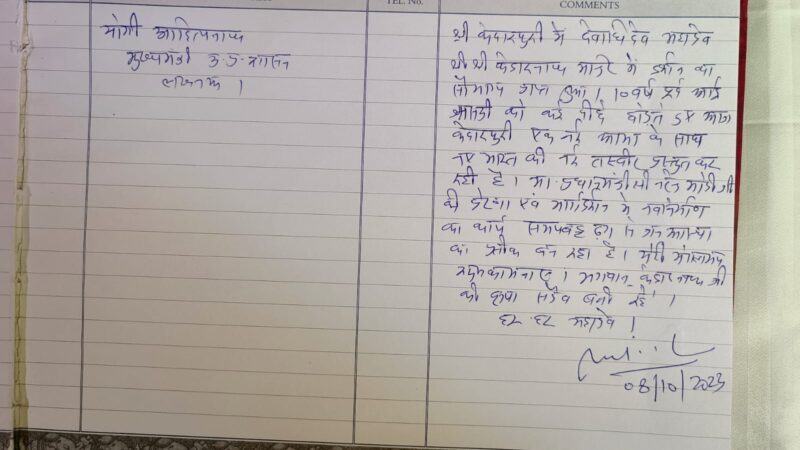 TEL. No.
COMMENTS
योगी आदित्यनाथ
मुख्यमंत्री उ.प्र. शासन
लखनऊ ।
श्री केदारपुरी में देवाधिदेव महादेव
श्री श्री केदारनाथ मंदिर में दर्शन का
सौभाग्य प्राप्त हुआ । १० वर्ष पूर्व आई
त्रासदी को कई पीछे छोड़ते हुए आज
केदारपुरी एक नई आभा के साथ
नए भारत की नई तस्वीर प्रस्तुत कर
रही है । मा. प्रधानमंत्री श्री नरेन्द्र मोदी जी
की प्रेरणा एवं मार्गदर्शन में नवनिर्माण
का कार्य समयबद्ध ढंग से जन आस्था
का प्रतीक बन रहा है । मेरी मंगलमय
शुभकामनाएं । भगवान केदारनाथ जी
की कृपा सदैव बनी रहे ।
हर हर महादेव !
08/10/2023